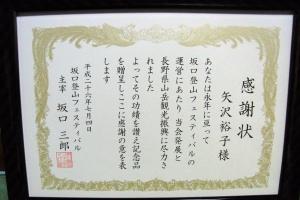 感謝状
矢沢裕子様
あなたは永年に亘って
坂口登山フェスティバルの
運営にあたり 当会発展と
長野県山岳観光振興に尽力さ
れました
よってその功績を讃え記念品
を贈呈しここに感謝の意を表
します
平成二十六年七月四日
坂口登山フェスティバル
主宰 坂口三郎